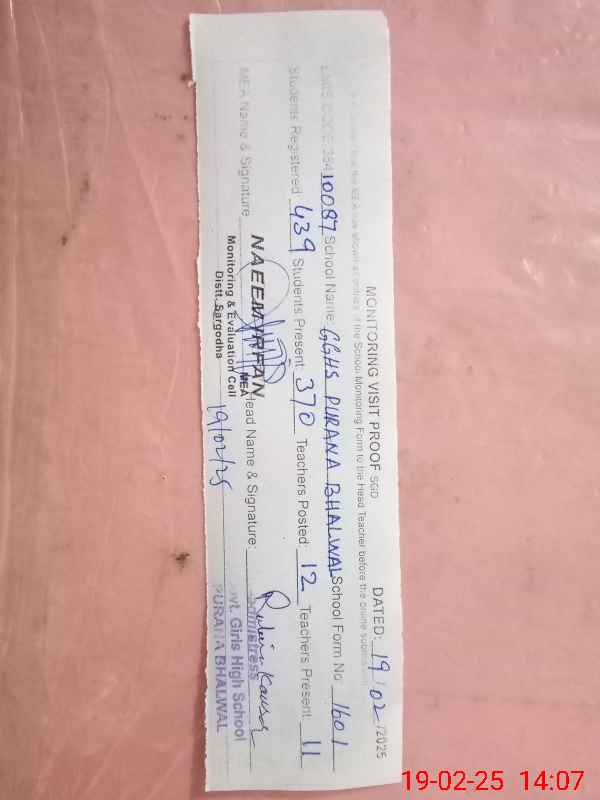 MONITORING VISIT PROOF SGD DATED: 19/02/2025
the MEA has shown all entries of the School Monitoring Form to the Head Teacher before the online submission
EMIS CODE 384 10087 School Name: GGHS PURANA BHALWAL School Form No: 1601
Students Registered: 439 Students Present: 370 Teachers Posted: 12 Teachers Present: 11
MEA Name & Signature: NAEEM IRFAN Head Name & Signature:
MEA
Monitoring & Evaluation Cell
Distt. Sargodha
19/02/25
Kausar
Govt. Girls High School
PURANA BHALWAL
19-02-25 14:07